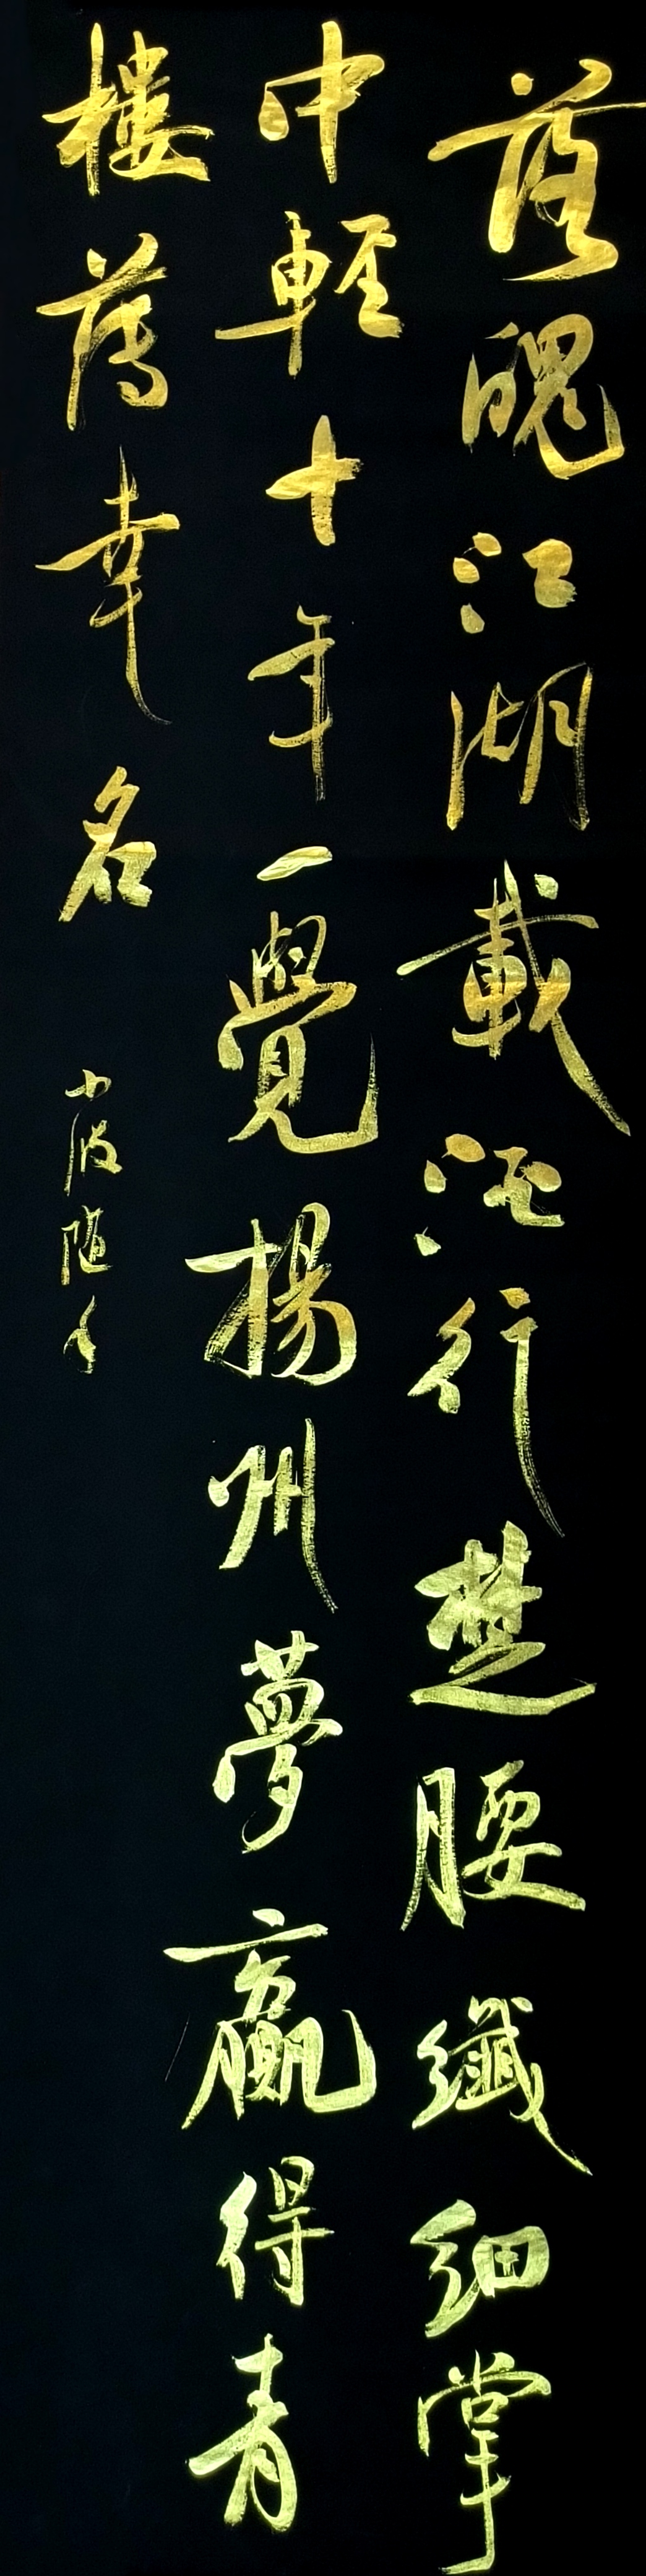 落魄江湖載酒行楚腰纖細掌
中輕十年一覺揚州夢贏得青
樓薄幸名
小波随手